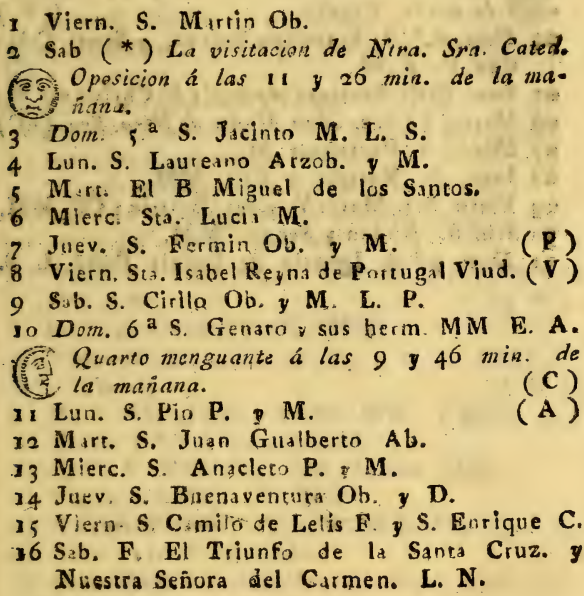 1 Viern. S. Martin Ob.
2 Sab (*) La visitacion de Ntra. Sra. Cated.
Oposicion á las 11 y 26 min. de la ma-
ñana.
3 Dom. 5ª S. Jacinto M. L. S.
4 Lun. S. Laureano Arzob. y M.
5 Mart. El B Miguel de los Santos.
6 Mierc. Sta. Lucia M.
7 Juev. S. Fermin Ob. y M. (P)
8 Viern. Sta. Isabel Reyna de Portugal Viud. (V)
9 Sab. S. Cirilo Ob. y M. L. P.
10 Dom. 6ª S. Genaro y sus herm. MM E. A.
Quarto menguante á las 9 y 46 min. de
la mañana. (C)
11 Lun. S. Pio P. y M. (A)
12 Mart. S. Juan Gualberto Ab.
13 Mierc. S. Anacleto P. y M.
14 Juev. S. Buenaventura Ob. y D.
15 Viern. S. Camilo de Lelis F. y S. Enrique C.
16 Sab. F. El Triunfo de la Santa Cruz. y
Nuestra Señora del Carmen. L. N.